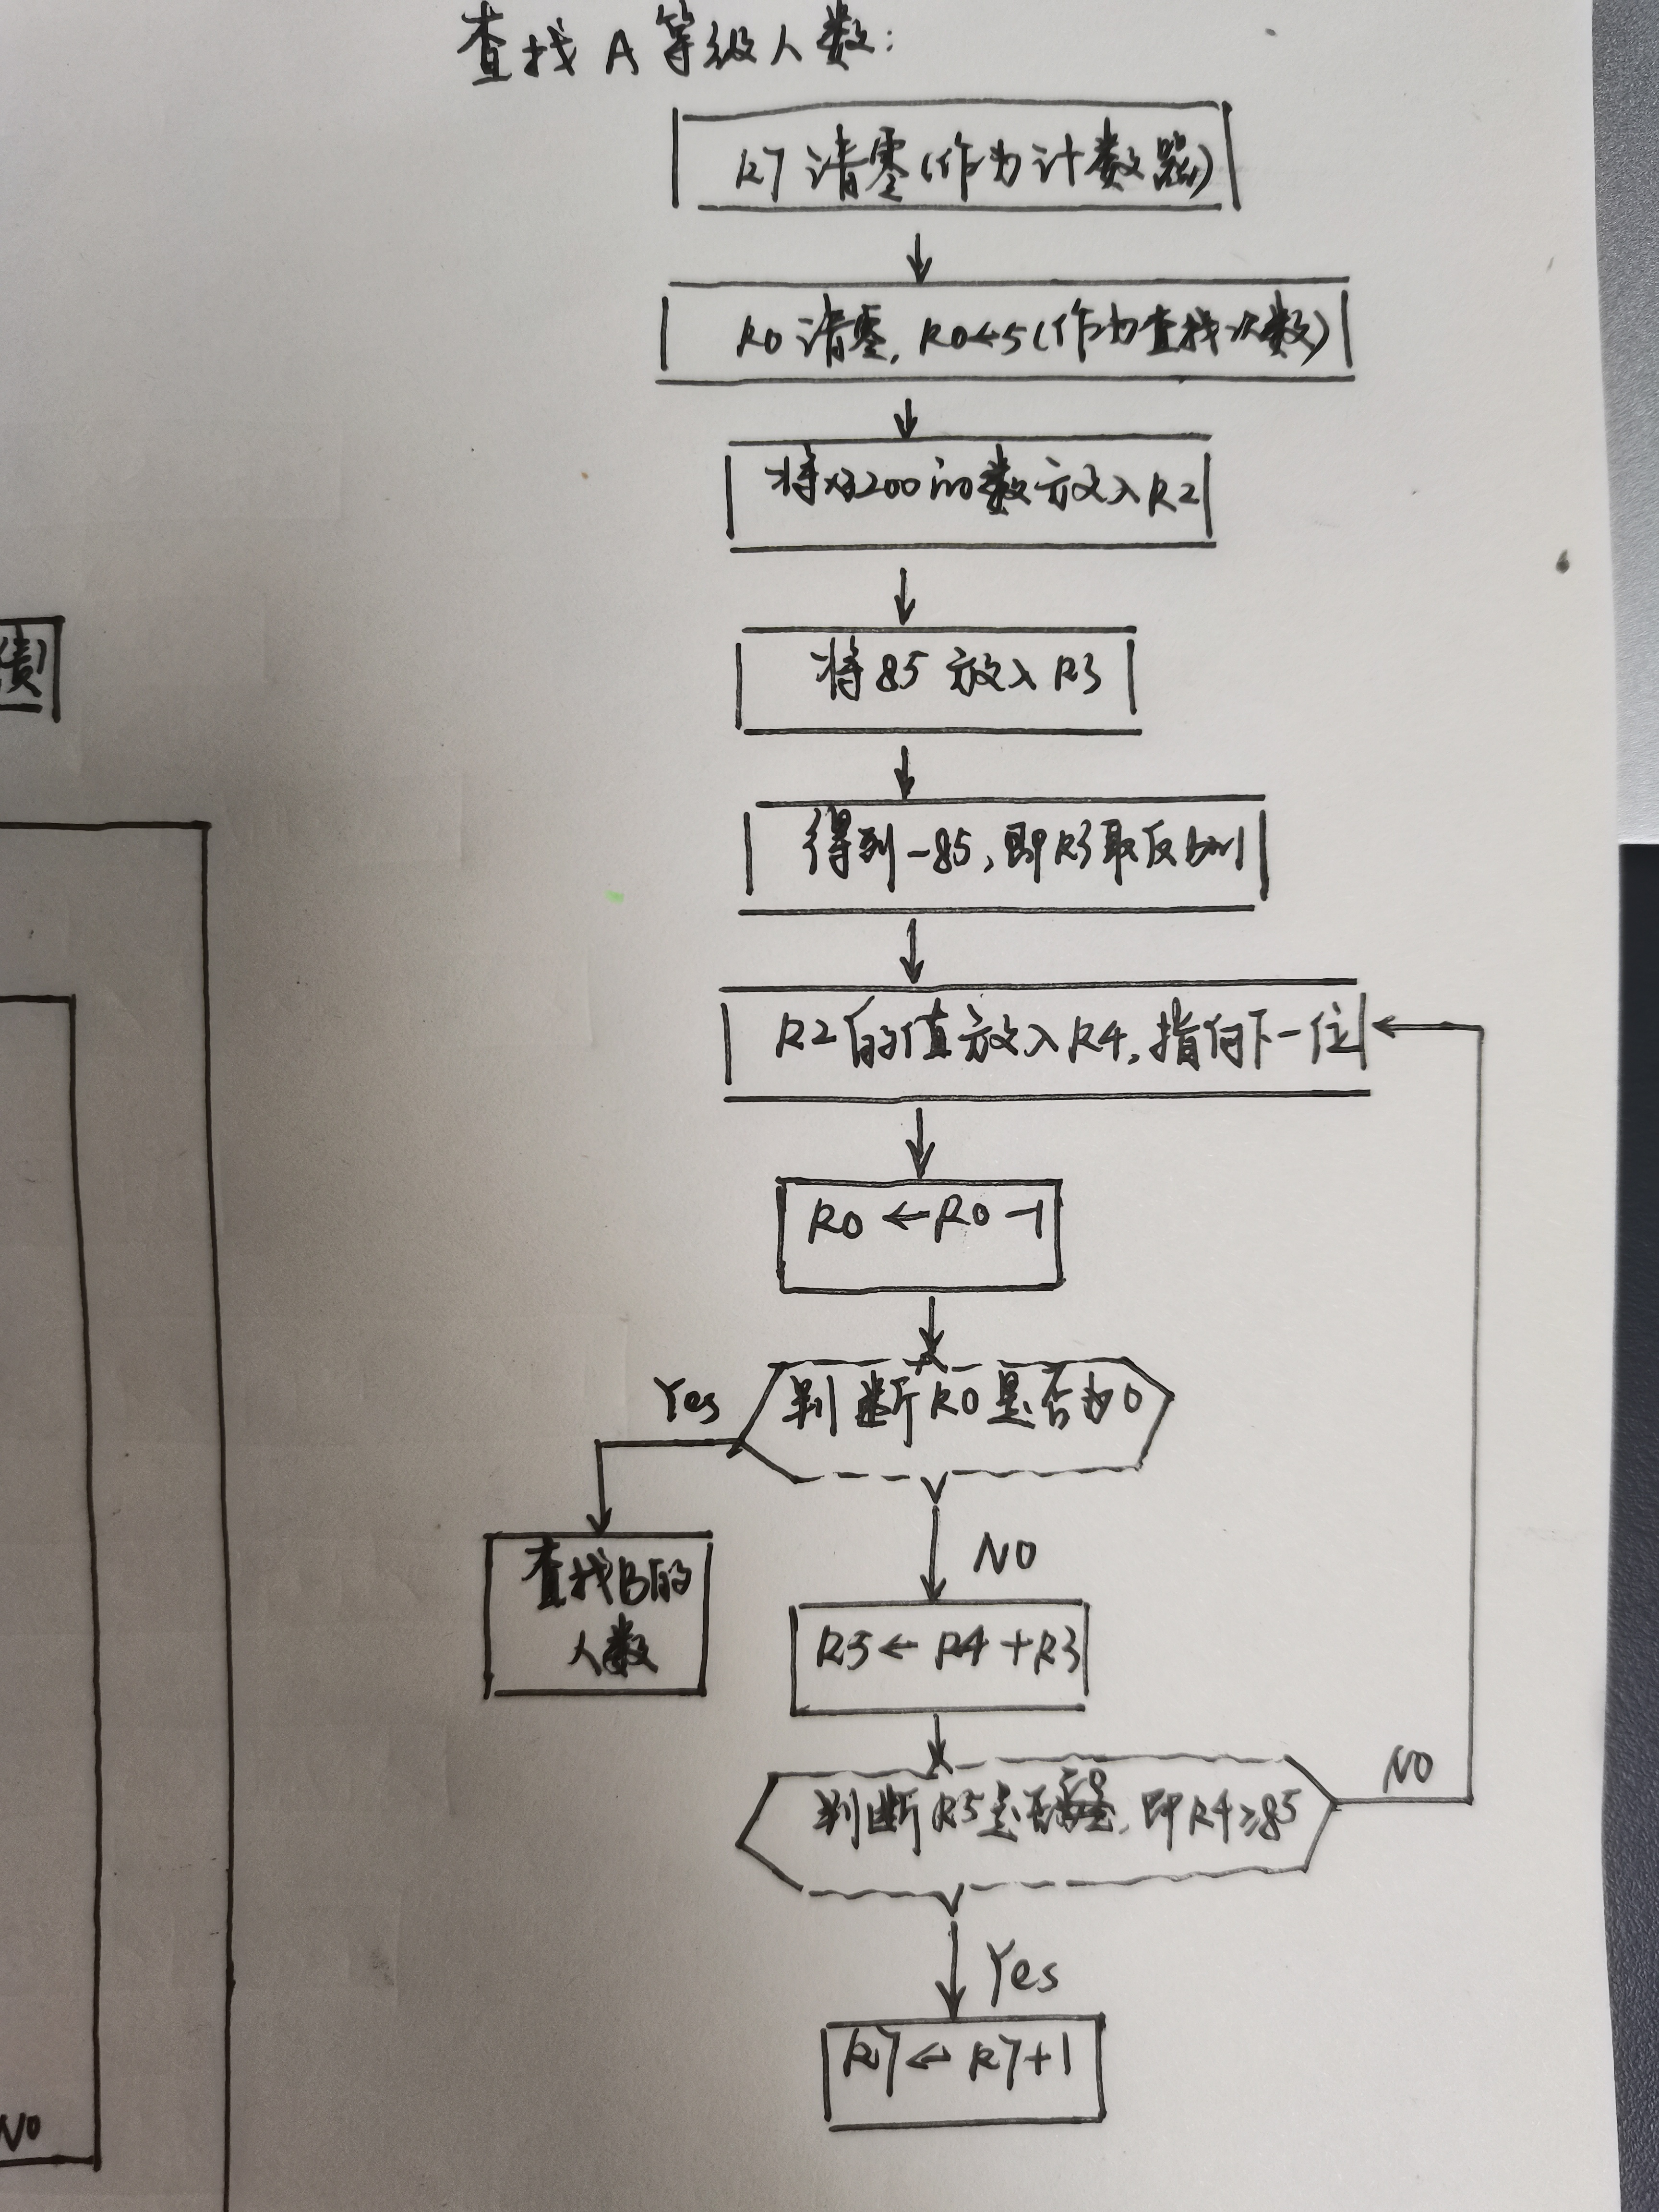 查找A等级人数：
R7清零(作为计数器)
R0清零，R0←5(作为查找次数)
将x3200的数放入R2
将85放入R3
得到-85，即R3取反加1
绩
R2的值放入R4，指向下一位
R0←R0-1
Yes
判断R0是否为0
NO
查找B的
人数
R5←R4+R3
判断R5是否，即R4≥85
NO
Yes
R7←R7+1
NO